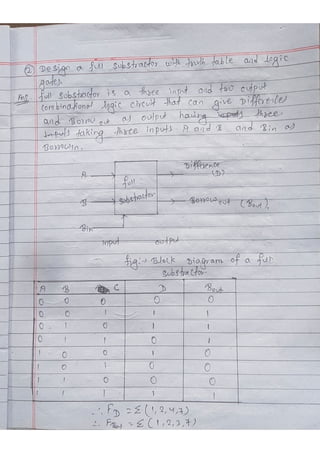 ② Design a full Substractor with truth table and logic
gates.
Ans full substractor is a three input and two output
combinational logic circuit that can give Difference
and Borrow out as output having three
inputs taking three inputs A and B and Bin as
Borrowin.
A
full
Substractor
Difference
(D)
B
Borrow out (Bout)
Bin
input output
fig:- Block Diagram of a full
Substractor
A B C D Bout
0 0 0 0 0
0 0 1 1 1
0 1 0 1 1
0 1 1 0 1
1 0 0 1 0
1 0 1 0 0
1 1 0 0 0
1 1 1 1 1
∴ FD = Σ(1,2,4,7)
∴ FBout = Σ(1,2,3,7)